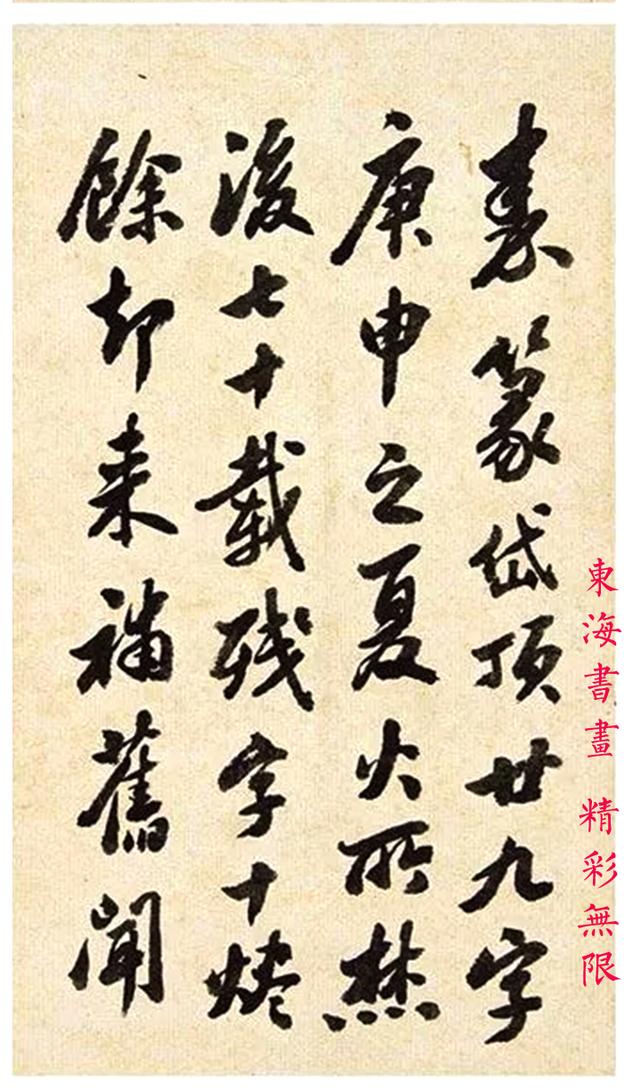 秦篆岱頂廿九字
庚申之夏火所焚
後七十載残字十燼
餘却来補舊聞
東海書畫 精彩無限